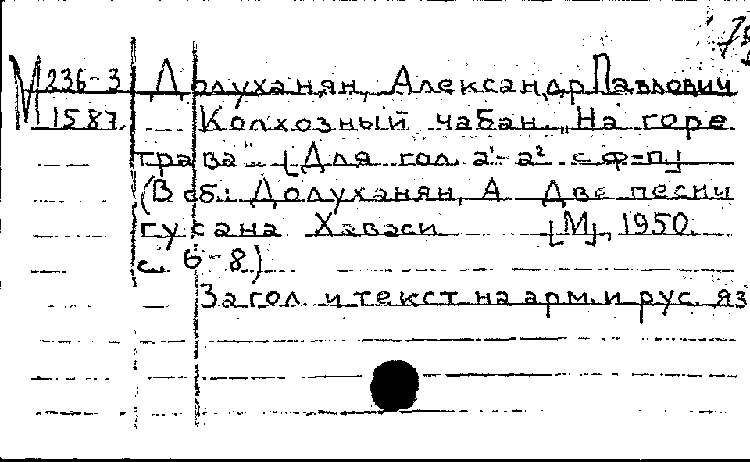 М 236-3 Долуханян, Александр Павлович
1587. Колхозный чабан. „На горе
трава" [Для гол. a¹-a² с ф-п]
(В сб.: Долуханян, А. Две песни
гусана Хаваси [М], 1950.
с. 6-8)
Загол. и текст на арм. и рус. яз